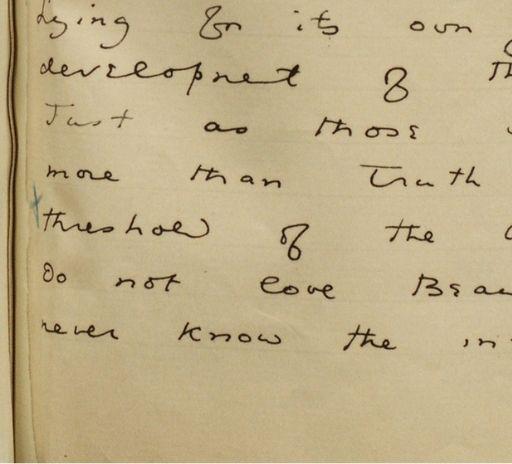 Lying for its own
development of th
Just as those
more than Truth
threshold of the
Do not love Beau
never know the in